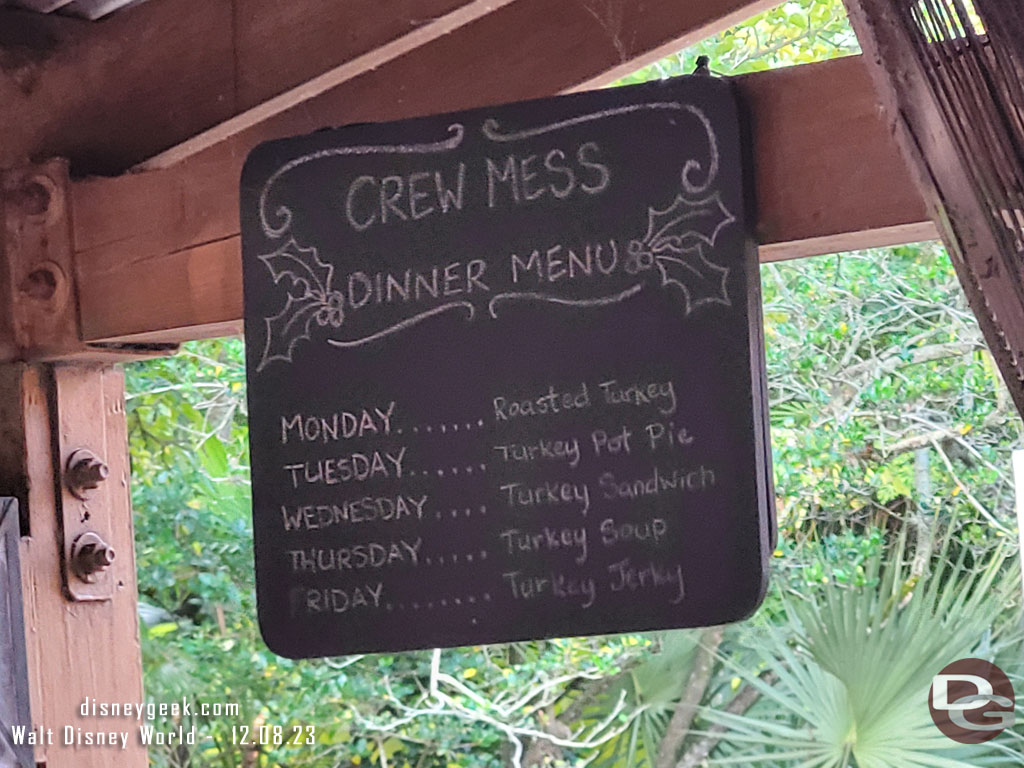 CREW MESS
DINNER MENU
MONDAY....... Roasted Turkey
TUESDAY...... Turkey Pot Pie
WEDNESDAY.... Turkey Sandwich
THURSDAY..... Turkey Soup
FRIDAY........ Turkey Jerky
disneygeek.com
Walt Disney World - 12.08.23
DG